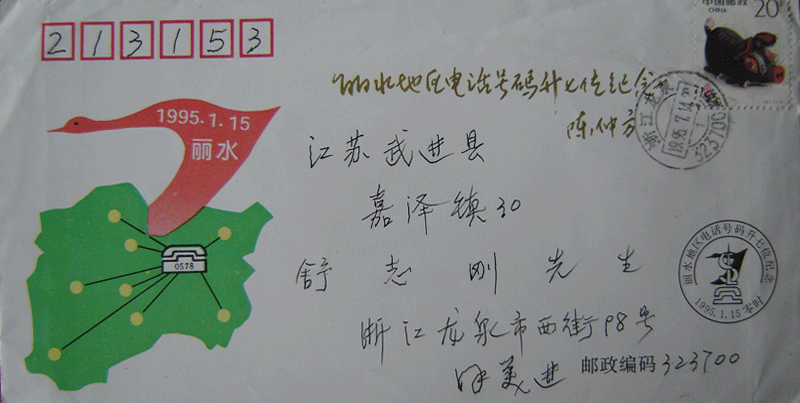 213153
中国邮政 20
CHINA
丽水地区电话号码升七位纪念
1995.1.15
丽水
浙江龙泉
1995.7.14
323700
江苏武进县
嘉泽镇30
舒志刚先生
0578
丽水地区电话号码升七位纪念
1995.1.15零时
浙江龙泉市西街98号
邮政编码323700